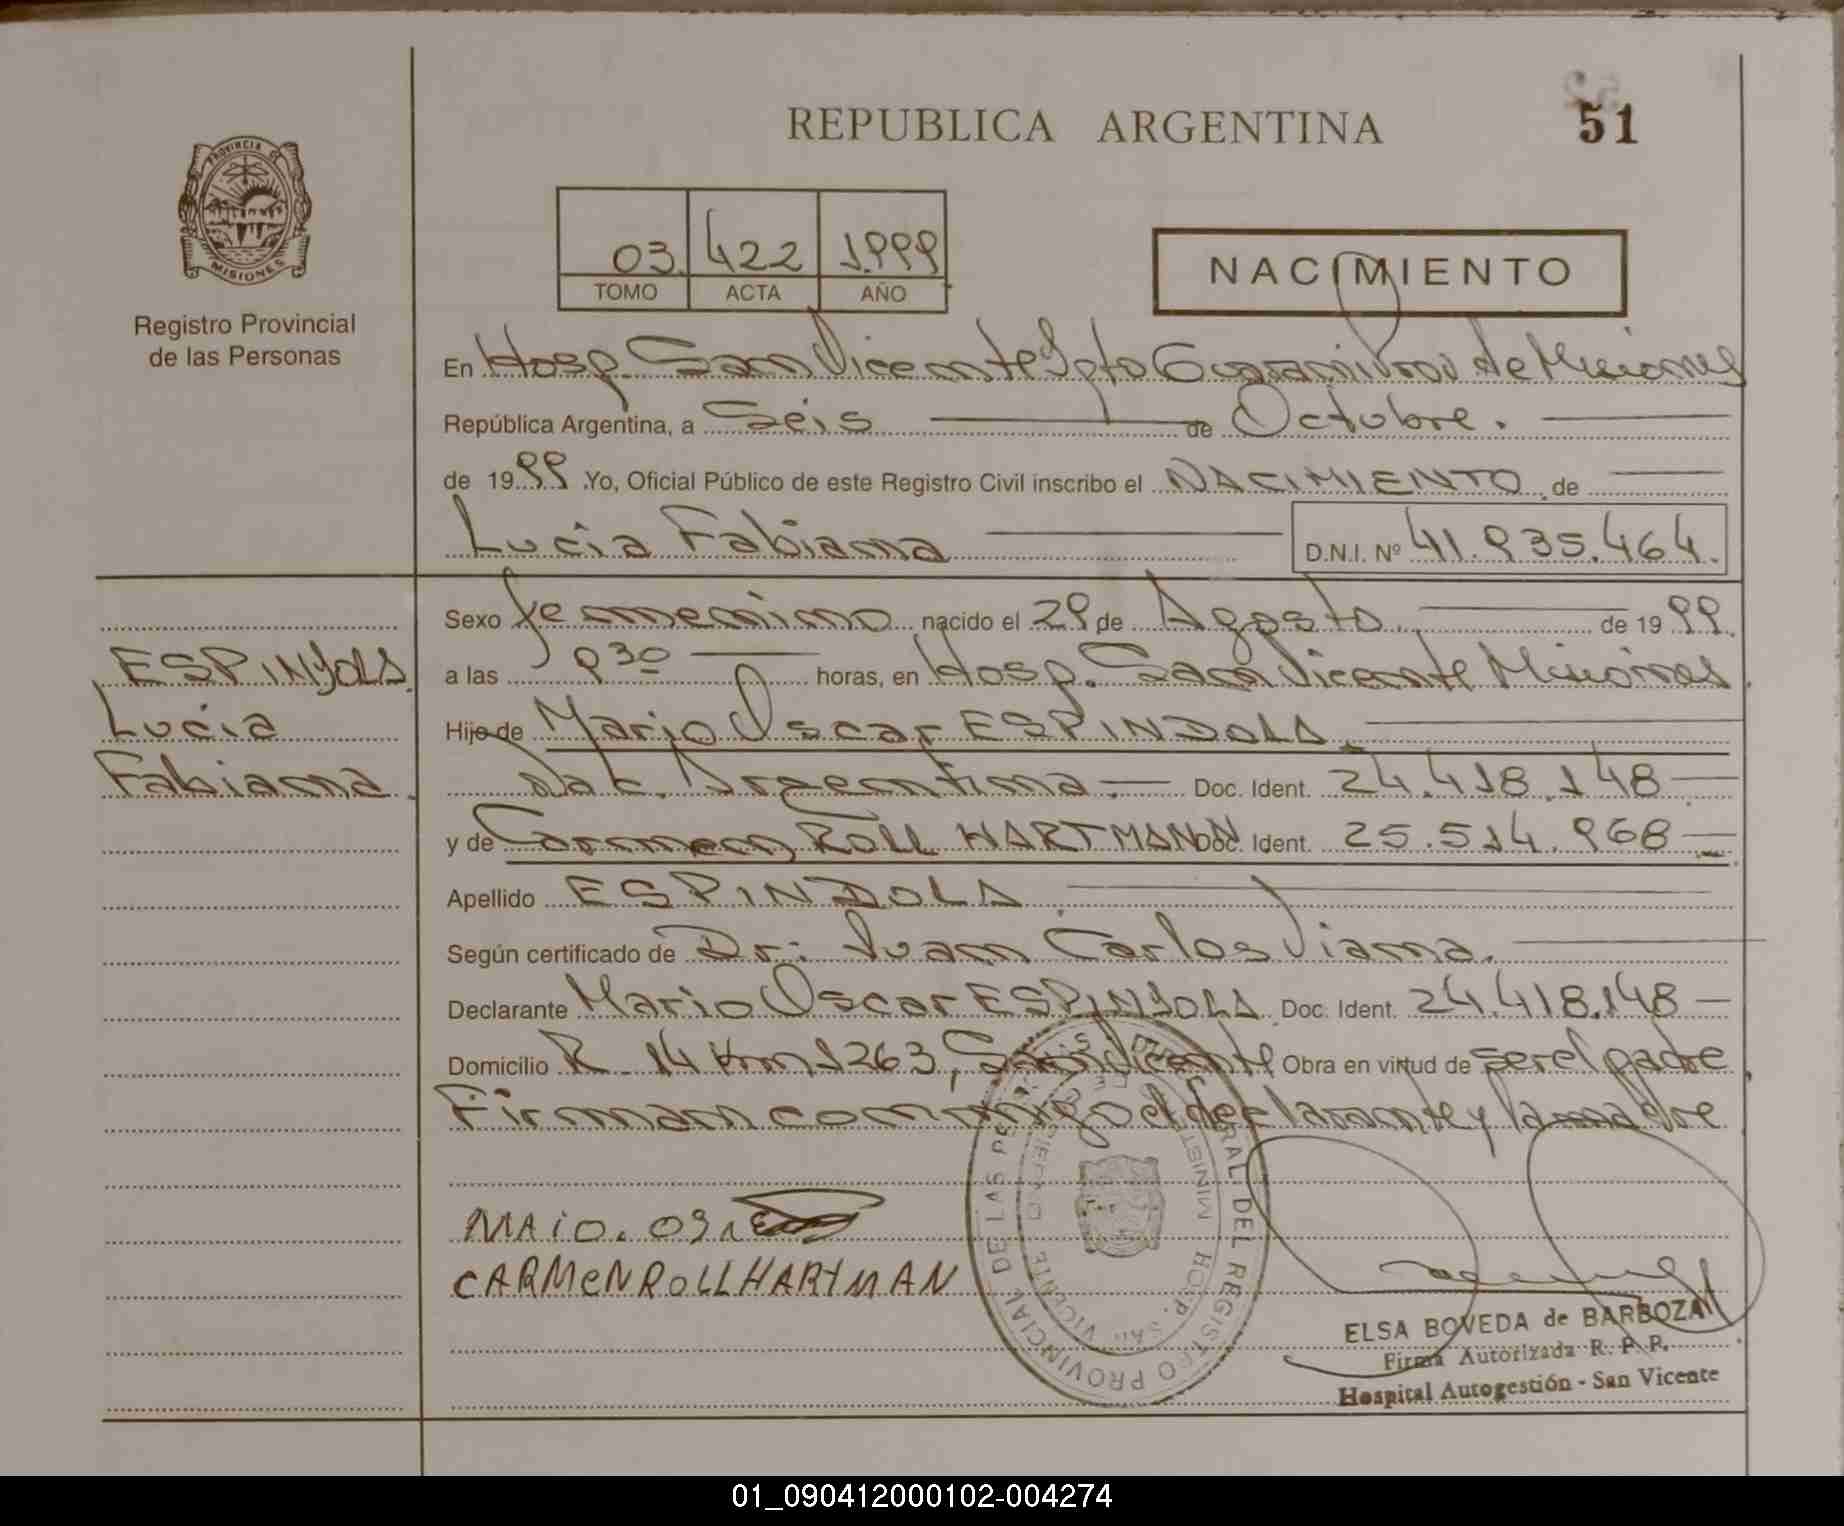 REPUBLICA ARGENTINA
51
PROVINCIA DE
MISIONES
Registro Provincial
de las Personas
03. 422 1.999
TOMO ACTA AÑO
NACIMIENTO
En Hosp. San Vicente Dpto Guaraní Prov de Misiones
República Argentina, a Seis de Octubre.
de 1999 Yo, Oficial Público de este Registro Civil inscribo el NACIMIENTO de
Lucia Fabiana D.N.I. Nº 41.935.464.
ESPINDOLA
Lucia
Fabiana.
Sexo femenino nacido el 29 de Agosto. de 1999.
a las 9 30 horas, en Hosp. San Vicente Misiones.
Hijo de Mario Oscar ESPINDOLA
Nac. Argentina. Doc. Ident. 24.418.148
y de Carmen ROLL HARTMANN Doc. Ident. 25.514.968
Apellido ESPINDOLA
Según certificado de Dr: Juan Carlos Viana.
Declarante Mario Oscar ESPINDOLA Doc. Ident. 24.418.148
Domicilio R. 14 Km 1263, San Vicente Obra en virtud de ser el padre
Firman conmigo el declarante y la madre
CARMEN ROLL HARTMAN
REGISTRO PROVINCIAL DE LAS
HOSP. SAN VICENTE
ELSA BOVEDA de BARBOZA
Firma Autorizada R. P. P.
Hospital Autogestión - San Vicente
01_090412000102-004274